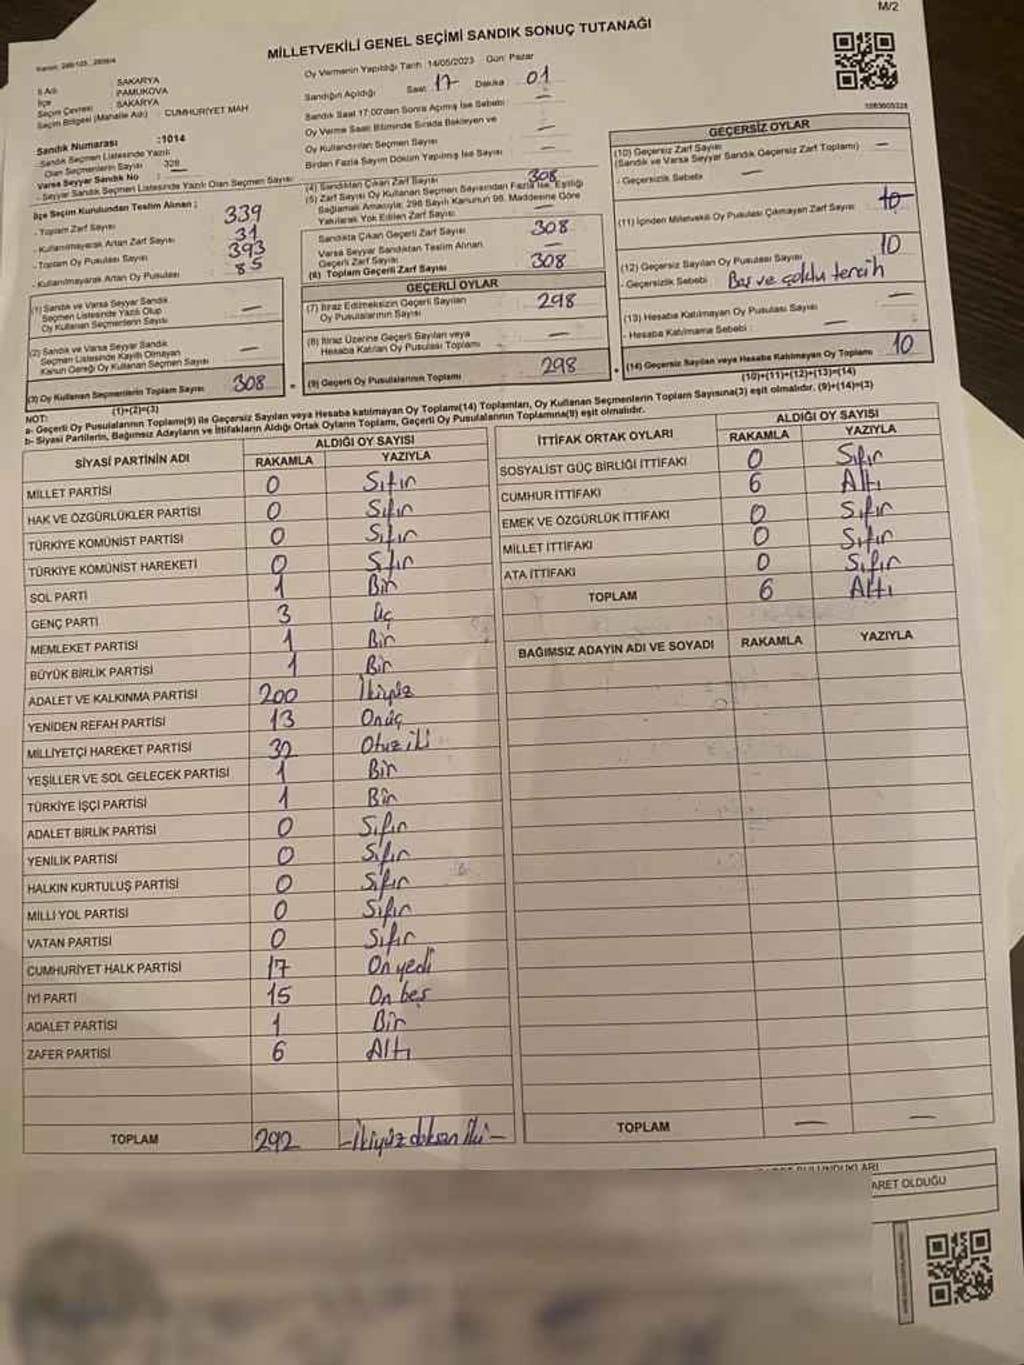 M/2
MİLLETVEKİLİ GENEL SEÇİMİ SANDIK SONUÇ TUTANAĞI
İl Adı : SAKARYA
İlçe : PAMUKOVA
Seçim Çevresi : SAKARYA
Seçim Bölgesi (Mahalle Adı) : CUMHURİYET MAH
Sandık Numarası :1014
Sandık Seçmen Listesinde Yazılı
Olan Seçmenlerin Sayısı : 328
Varsa Seyyar Sandık No : —
- Seyyar Sandık Seçmen Listesinde Yazılı Olan Seçmen Sayısı
İlçe Seçim Kurulundan Teslim Alınan ;
- Toplam Zarf Sayısı 339
- Kullanılmayarak Artan Zarf Sayısı 31
- Toplam Oy Pusulası Sayısı 393
- Kullanılmayarak Artan Oy Pusulası 85
(1) Sandık ve Varsa Seyyar Sandık
Seçmen Listesinde Yazılı Olup
Oy Kullanan Seçmenlerin Sayısı —
(2) Sandık ve Varsa Seyyar Sandık
Seçmen Listesinde Kayıtlı Olmayan
Kanun Gereği Oy Kullanan Seçmen Sayısı —
(3) Oy Kullanan Seçmenlerin Toplam Sayısı 308
(1)+(2)=(3)
Oy Vermenin Yapıldığı Tarih :14/05/2023 Gün: Pazar
Sandığın Açıldığı Saat 17 Dakika 01
Sandık Saat 17:00'den Sonra Açılmış İse Sebebi : —
Oy Verme Saati Bitiminde Sırada Bekleyen ve
Oy Kullandırılan Seçmen Sayısı —
Birden Fazla Sayım Döküm Yapılmış İse Sayısı —
(4) Sandıktan Çıkan Zarf Sayısı 308
(5) Zarf Sayısı Oy Kullanan Seçmen Sayısından Fazla İse, Eşitliği
Sağlamak Amacıyla; 298 Sayılı Kanunun 98. Maddesine Göre
Yakılarak Yok Edilen Zarf Sayısı —
Sandıkta Çıkan Geçerli Zarf Sayısı 308
Varsa Seyyar Sandıktan Teslim Alınan
Geçerli Zarf Sayısı —
(6) Toplam Geçerli Zarf Sayısı 308
GEÇERLİ OYLAR
(7) İtiraz Edilmeksizin Geçerli Sayılan
Oy Pusulalarının Sayısı 298
(8) İtiraz Üzerine Geçerli Sayılan veya
Hesaba Katılan Oy Pusulası Toplamı —
(9) Geçerli Oy Pusulalarının Toplamı 298
GEÇERSİZ OYLAR
(10) Geçersiz Zarf Sayısı
(Sandık ve Varsa Seyyar Sandık Geçersiz Zarf Toplamı) —
- Geçersizlik Sebebi : —
(11) İçinden Milletvekili Oy Pusulası Çıkmayan Zarf Sayısı 10
(12) Geçersiz Sayılan Oy Pusulası Sayısı 10
- Geçersizlik Sebebi : Boş ve çoklu tercih
(13) Hesaba Katılmayan Oy Pusulası Sayısı —
- Hesaba Katılmama Sebebi : —
(14) Geçersiz Sayılan veya Hesaba Katılmayan Oy Toplamı 10
(10)+(11)+(12)+(13)=(14)
NOT:
a- Geçerli Oy Pusulalarının Toplamı(9) ile Geçersiz Sayılan veya Hesaba katılmayan Oy Toplamı(14) Toplamları, Oy Kullanan Seçmenlerin Toplam Sayısına(3) eşit olmalıdır. (9)+(14)=(3)
b- Siyasi Partilerin, Bağımsız Adayların ve İttifakların Aldığı Ortak Oyların Toplamı, Geçerli Oy Pusulalarının Toplamına(9) eşit olmalıdır.
SİYASİ PARTİNİN ADI ALDIĞI OY SAYISI
RAKAMLA YAZIYLA
MİLLET PARTİSİ 0 Sıfır
HAK VE ÖZGÜRLÜKLER PARTİSİ 0 Sıfır
TÜRKİYE KOMÜNİST PARTİSİ 0 Sıfır
TÜRKİYE KOMÜNİST HAREKETİ 0 Sıfır
SOL PARTİ 1 Bir
GENÇ PARTİ 3 Üç
MEMLEKET PARTİSİ 1 Bir
BÜYÜK BİRLİK PARTİSİ 1 Bir
ADALET VE KALKINMA PARTİSİ 200 İkiyüz
YENİDEN REFAH PARTİSİ 13 Onüç
MİLLİYETÇİ HAREKET PARTİSİ 32 Otuz iki
YEŞİLLER VE SOL GELECEK PARTİSİ 1 Bir
TÜRKİYE İŞÇİ PARTİSİ 1 Bir
ADALET BİRLİK PARTİSİ 0 Sıfır
YENİLİK PARTİSİ 0 Sıfır
HALKIN KURTULUŞ PARTİSİ 0 Sıfır
MİLLİ YOL PARTİSİ 0 Sıfır
VATAN PARTİSİ 0 Sıfır
CUMHURİYET HALK PARTİSİ 17 On yedi
İYİ PARTİ 15 On beş
ADALET PARTİSİ 1 Bir
ZAFER PARTİSİ 6 Altı
TOPLAM 292 -İkiyüz doksan iki-
İTTİFAK ORTAK OYLARI ALDIĞI OY SAYISI
RAKAMLA YAZIYLA
SOSYALİST GÜÇ BİRLİĞİ İTTİFAKI 0 Sıfır
CUMHUR İTTİFAKI 6 Altı
EMEK VE ÖZGÜRLÜK İTTİFAKI 0 Sıfır
MİLLET İTTİFAKI 0 Sıfır
ATA İTTİFAKI 0 Sıfır
TOPLAM 6 Altı
BAĞIMSIZ ADAYIN ADI VE SOYADI RAKAMLA YAZIYLA
TOPLAM — —
ARET OLDUĞU